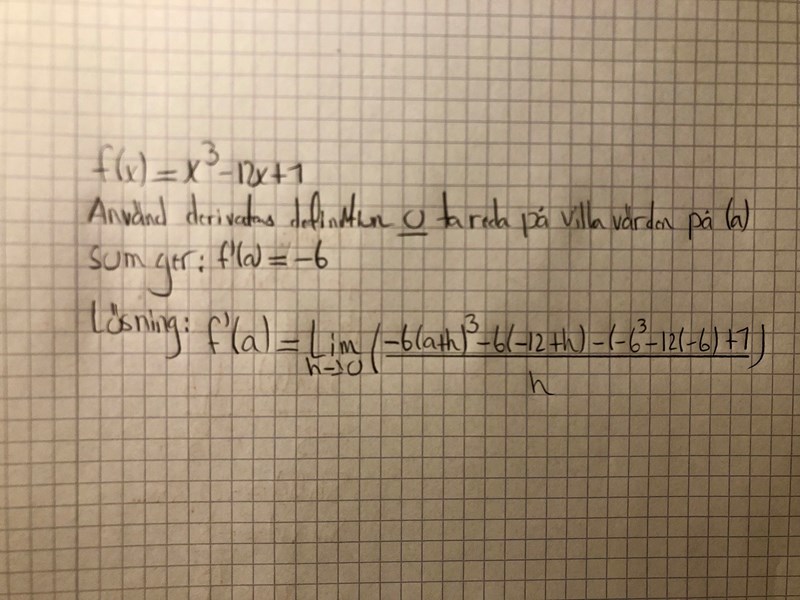 f(x) = x³ - 12x + 1
Använd derivatans definition U ta reda på villa värden på (a)
som ger: f'(a) = -6
Lösning: f'(a) = Lim h→0 (-6(a+h)³ - 6(-12+h) - (-6³ - 12(-6) + 1) / h)